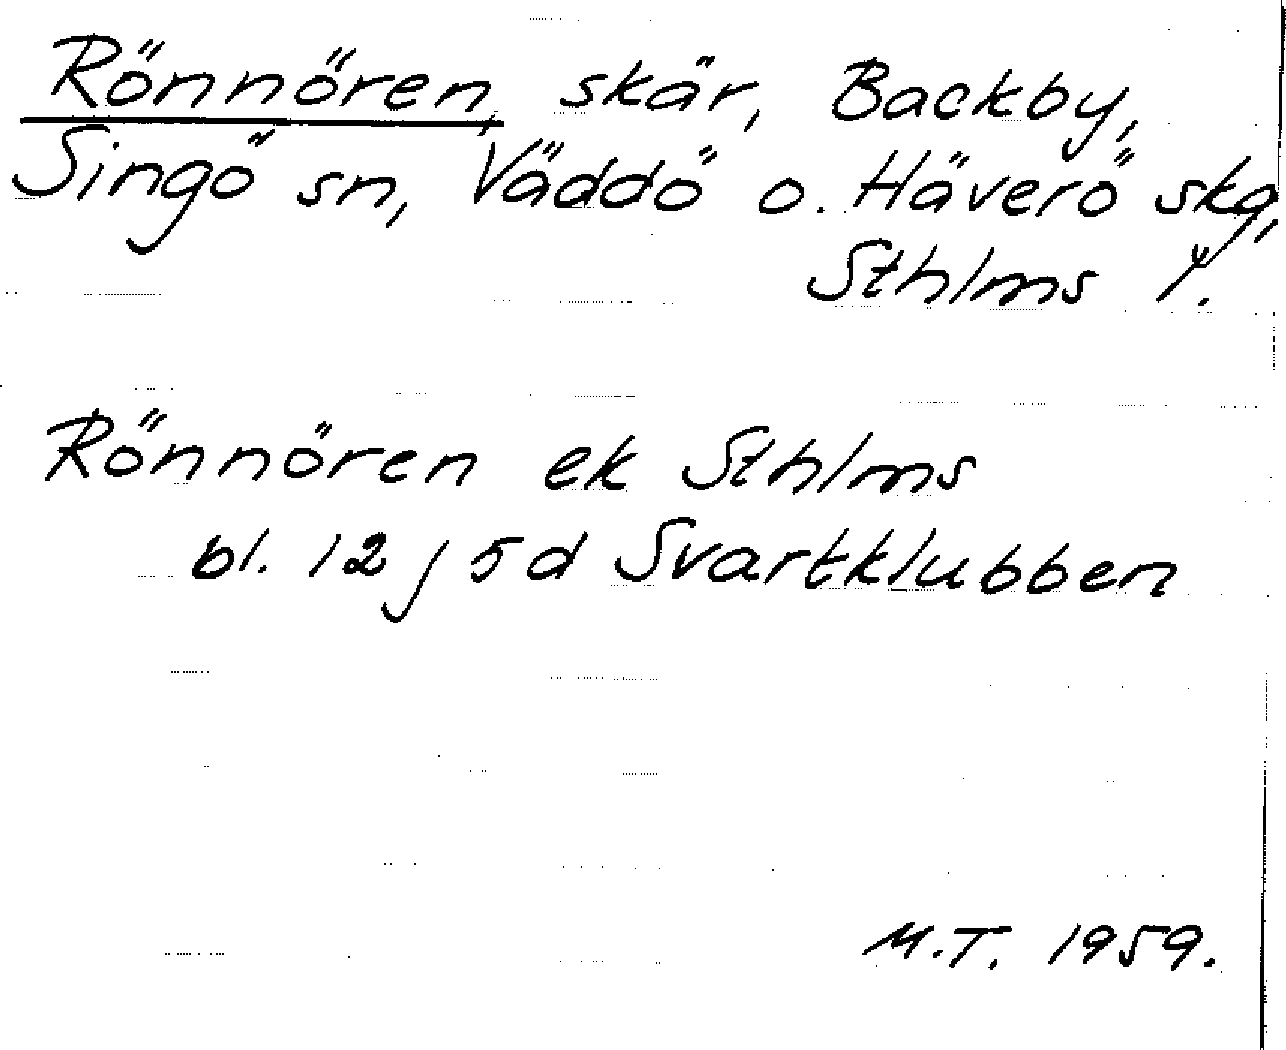 Rönnören, skär, Backby,
Singö sn, Väddö o. Häverö skg,
Sthlms l.
Rönnören ek Sthlms
bl. 12 j 5d Svartklubben
M.T. 1959.